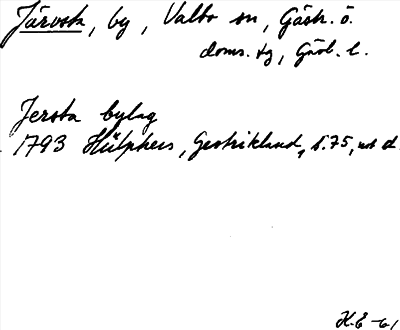 Järvsta, by, Valbo sn, Gästr. ö.
doms. tg, Gävl. l.
Jersta bylag
1793 Hülphers, Gestrikland, s. 75, not d.
H.E -61